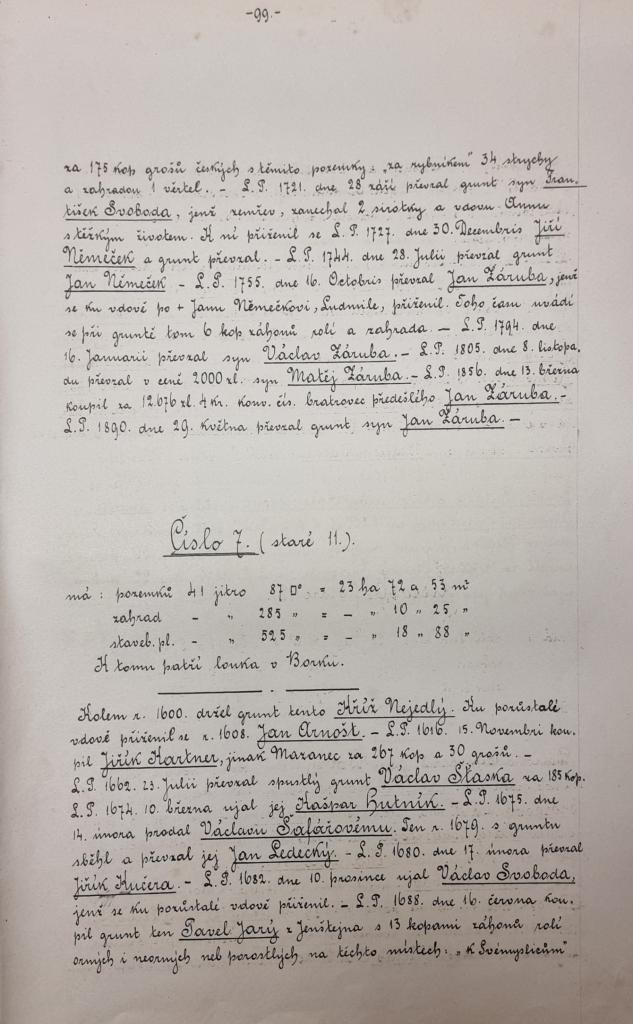 -99.-
za 175 kop grošů českých s těmito pozemky: „za rybníkem" 34 strychy
a zahradou 1 věrtel. - L.P. 1721. dne 28 září převzal grunt syn Fran-
tišek Svoboda, jenž zemřev, zanechal 2 sirotky a vdovu Annu
stěžkým životem. K ní přiženil se L.P. 1727. dne 30. Decembris Jiří
Němeček a grunt převzal. - L.P. 1744. dne 28. Julii převzal grunt
Jan Němeček - L.P. 1755. dne 16. Octobris převzal Jan Záruba, jenž
se ku vdově po + Janu Němečkovi, Ludmile, přiženil. Toho času uvádí
se při gruntě tom 6 kop záhonů rolí a zahrada. - L.P. 1794. dne
16. Januarii převzal syn Václav Záruba. - L.P. 1805. dne 8. listopa.
du převzal v ceně 2000 zl. syn Matěj Záruba. - L.P. 1856. dne 13. března
koupil za 12.076 zl. 4 kr. konv. čís. bratrovec předešlého Jan Záruba. -
L.P. 1890. dne 29. května převzal grunt syn Jan Záruba. -
Číslo 7. (staré 11.).
má: pozemků 41 jitro 87 □° = 23 ha 72 a 53 m²
zahrad - „ 285 „ = - „ 10 „ 25 „
staveb. pl. - „ 525 „ = - „ 18 „ 88 „
K tomu patří louka v Borku.
Kolem r. 1600. držel grunt tento Kříž Nejedlý. Ku pozůstalé
vdově přiženil se r. 1608. Jan Arnošt. - L.P. 1616. 15. Novembri kou-
pil Jiřík Kartner, jinak Mazanec za 267 kop a 30 grošů. -
L.P. 1662. 23. Julii převzal spustlý grunt Václav Šťaska za 185 kop.
L.P. 1674. 10. března ujal jej Kašpar Hutník. - L.P. 1675. dne
14. února prodal Václavu Šafářovému. Ten r. 1679. s gruntu
sběhl a převzal jej Jan Ledecký. - L.P. 1680. dne 17. února převzal
Jiřík Kučera. - L.P. 1682. dne 10. prosince ujal Václav Svoboda,
jenž se ku pozůstalé vdově přiženil. - L.P. 1688. dne 16. června kou-
pil grunt ten Pavel Jarý z Jenštejna s 13 kopami záhonů rolí
orných i neorných neb porostlých na těchto místech: „K Svémyslicům"